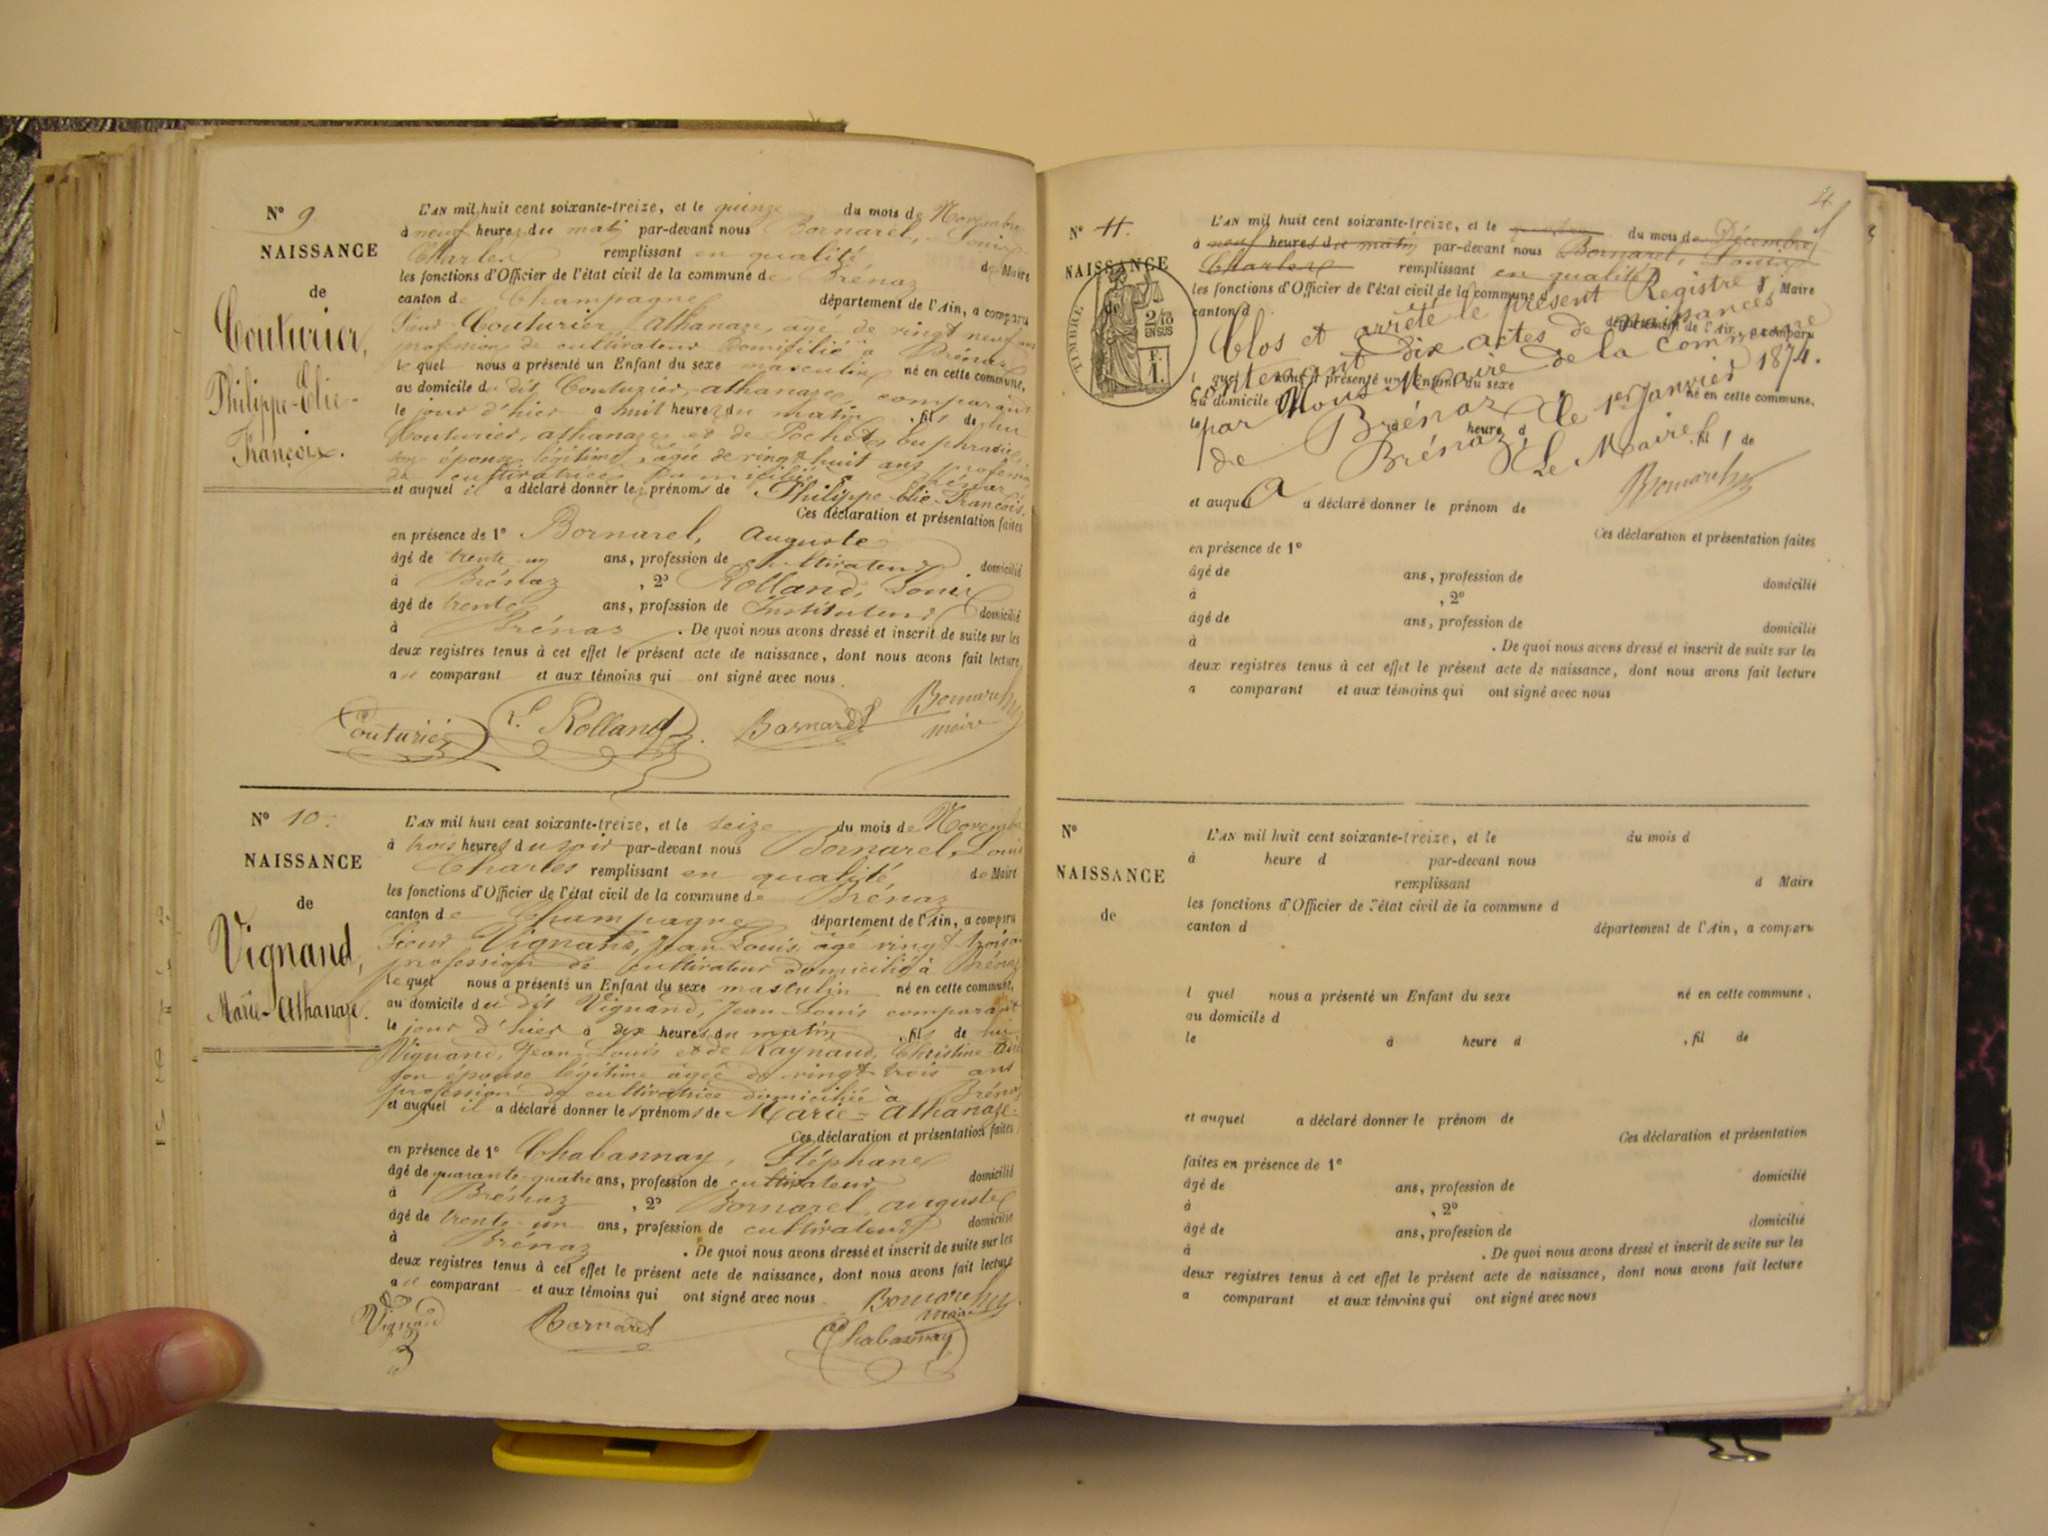 N° 9
NAISSANCE
de
Couturier,
Philippe-Elie-
François.
L'AN mil huit cent soixante-treize, et le quinze du mois de Novembre
à neuf heures du matin par-devant nous Bornarel, Louis
Charles remplissant en qualité de Maire
les fonctions d'Officier de l'état civil de la commune de Brénaz
canton de Champagne département de l'Ain, a comparu
Sieur Couturier, Athanaze, âgé de vingt neuf ans
profession de cultivateur domicilié à Brénaz
le quel nous a présenté un Enfant du sexe masculin né en cette commune,
au domicile du dit Couturier, athanaze, comparant
le jour d'hier à huit heures du matin, fils de lui
Couturier, athanaze et de Pochet, Euphrasie,
son épouse légitime, âgée de vingt huit ans, profession
de cultivatrice, domiciliée à Brénaz
et auquel il a déclaré donner les prénoms de Philippe Elie François.
Ces déclaration et présentation faites
en présence de 1° Bornarel, Auguste
âgé de trente un ans, profession de cultivateur domicilié
à Brénaz , 2° Rolland, Louis
âgé de trente ans, profession de Instituteur domicilié
à Brénaz . De quoi nous avons dressé et inscrit de suite sur les
deux registres tenus à cet effet le présent acte de naissance, dont nous avons fait lecture
au comparant et aux témoins qui ont signé avec nous
Couturier L. Rolland Bornarel Bornarel
maire
N° 10.
NAISSANCE
de
Vignand,
Marie-Athanaze.
L'AN mil huit cent soixante-treize, et le seize du mois de Novembre
à trois heures du soir par-devant nous Bornarel, Louis
Charles remplissant en qualité de Maire
les fonctions d'Officier de l'état civil de la commune de Brénaz
canton de Champagne département de l'Ain, a comparu
Sieur Vignand, Jean Louis, âgé vingt trois ans
profession de cultivateur domicilié à Brénaz
le quel nous a présenté un Enfant du sexe masculin né en cette commune,
au domicile du dit Vignand, Jean-Louis comparant
le jour d'hier à dix heures du matin, fils de lui
Vignand, Jean Louis et de Raynaud, Christine
son épouse légitime âgée de vingt trois ans
profession de cultivatrice domiciliée à Brénaz
et auquel il a déclaré donner les prénoms de Marie-Athanaze-
Ces déclaration et présentation faites
en présence de 1° Chabannay, Stéphane
âgé de quarante-quatre ans, profession de cultivateur domicilié
à Brénaz , 2° Bornarel, auguste
âgé de trente-un ans, profession de cultivateur domicilié
à Brénaz . De quoi nous avons dressé et inscrit de suite sur les
deux registres tenus à cet effet le présent acte de naissance, dont nous avons fait lecture
au comparant et aux témoins qui ont signé avec nous
Vignand Bornarel Bornarel
maire
Chabannay
4
N° 11.
NAISSANCE
de
TIMBRE
2/10
EN SUS
F.
1.
L'AN mil huit cent soixante-treize, et le du mois de Décembre
à neuf heures du matin par-devant nous Bornarel, Louis
Charles remplissant en qualité d Maire
les fonctions d'Officier de l'état civil de la commune d
canton d département de l'Ain, a comparu
Clos et arrêté le présent Registre
contenant dix actes de naissances
par Nous Maire de la commune
de Brénaz
Brénaz, le 1er Janvier 1874.
Le Maire
Bornarel
l quel nous a présenté un Enfant du sexe né en cette commune.
au domicile d
le à heure d , fil de
et auquel a déclaré donner le prénom de
Ces déclaration et présentation faites
en présence de 1°
âgé de ans, profession de domicilié
à , 2°
âgé de ans, profession de domicilié
à . De quoi nous avons dressé et inscrit de suite sur les
deux registres tenus à cet effet le présent acte de naissance, dont nous avons fait lecture
a comparant et aux témoins qui ont signé avec nous
N°
NAISSANCE
de
L'AN mil huit cent soixante-treize, et le du mois d
à heure d par-devant nous
remplissant d Maire
les fonctions d'Officier de l'état civil de la commune d
canton d département de l'Ain, a comparu
l quel nous a présenté un Enfant du sexe né en cette commune.
au domicile d
le à heure d , fil de
et auquel a déclaré donner le prénom de
Ces déclaration et présentation
faites en présence de 1°
âgé de ans, profession de domicilié
à , 2°
âgé de ans, profession de domicilié
à . De quoi nous avons dressé et inscrit de suite sur les
deux registres tenus à cet effet le présent acte de naissance, dont nous avons fait lecture
a comparant et aux témoins qui ont signé avec nous